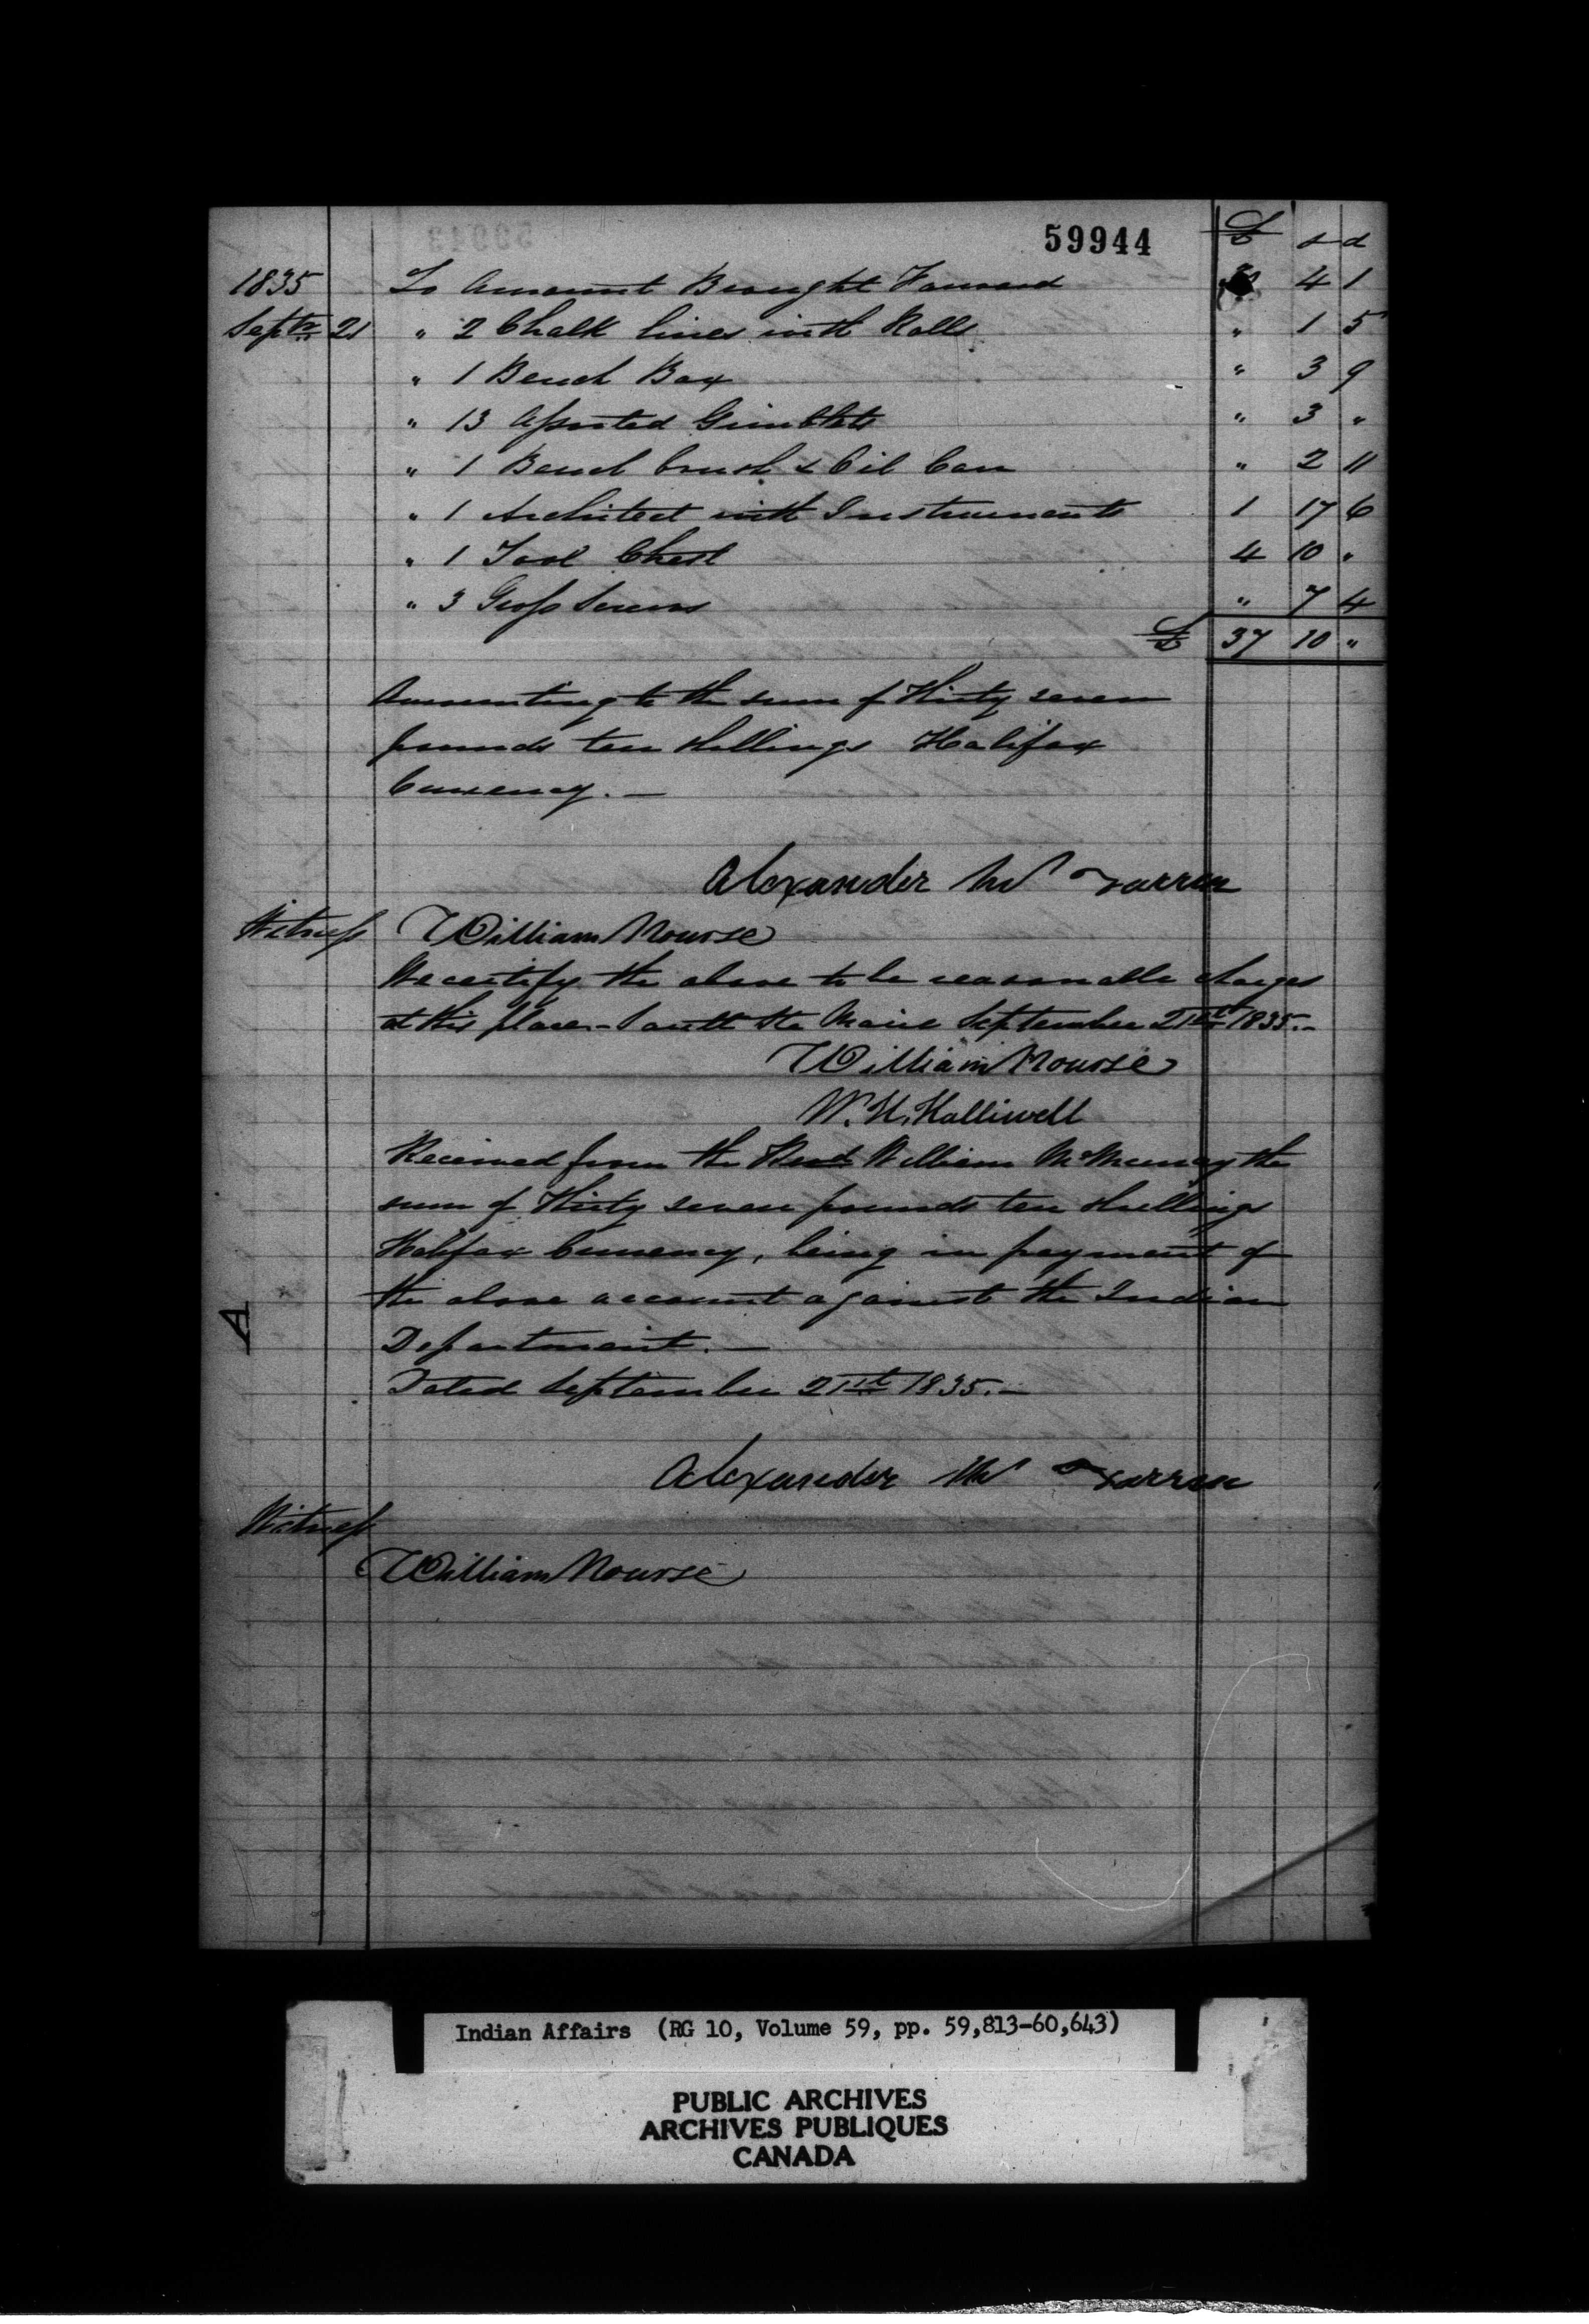 59944
£ s d
1835 To Amount Brought Forward 4 1
Septr 21 " 2 Chalk lines with Rolls " 1 5
" 1 Bench Box " 3 9
" 13 Assorted Gimblets " 3 "
" 1 Bench brush & Oil Can " 2 11
" 1 Architect with Instruments 1 17 6
" 1 Tool Chest 4 10 "
" 3 Gross Screws " 7 4
£ 37 10 "
Amounting to the sum of Thirty seven
pounds ten shillings Halifax
Currency. —
Alexander
Witness William Nourse
We certify the above to be reasonable charges
at this place - Sault Ste Marie September 21st 1835. -
William Nourse
W. H. Halliwell
Received from the Revd William McMurray the
sum of Thirty seven pounds ten shillings
Halifax Currency, being in payment of
the above account against the Indian
A
Department. —
Dated September 21st 1835. -
Alexander
Witness
William Nourse
Indian Affairs (RG 10, Volume 59, pp. 59,813-60,643)
PUBLIC ARCHIVES
ARCHIVES PUBLIQUES
CANADA